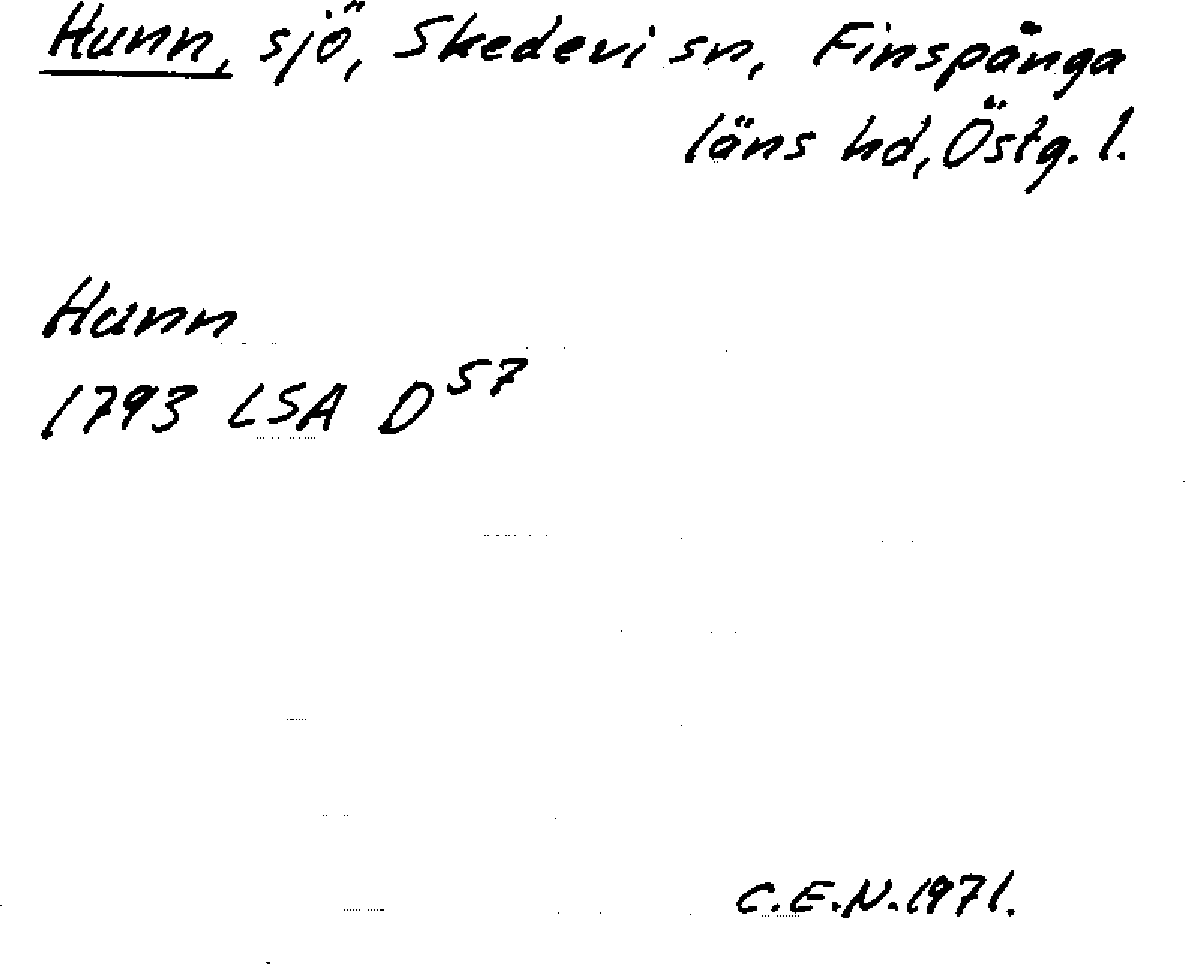 Hunn, sjö, Skedevi sn, Finspånga
läns hd, Östg. l.
Hunn
1793 LSA D57
C.E.N. 1971.